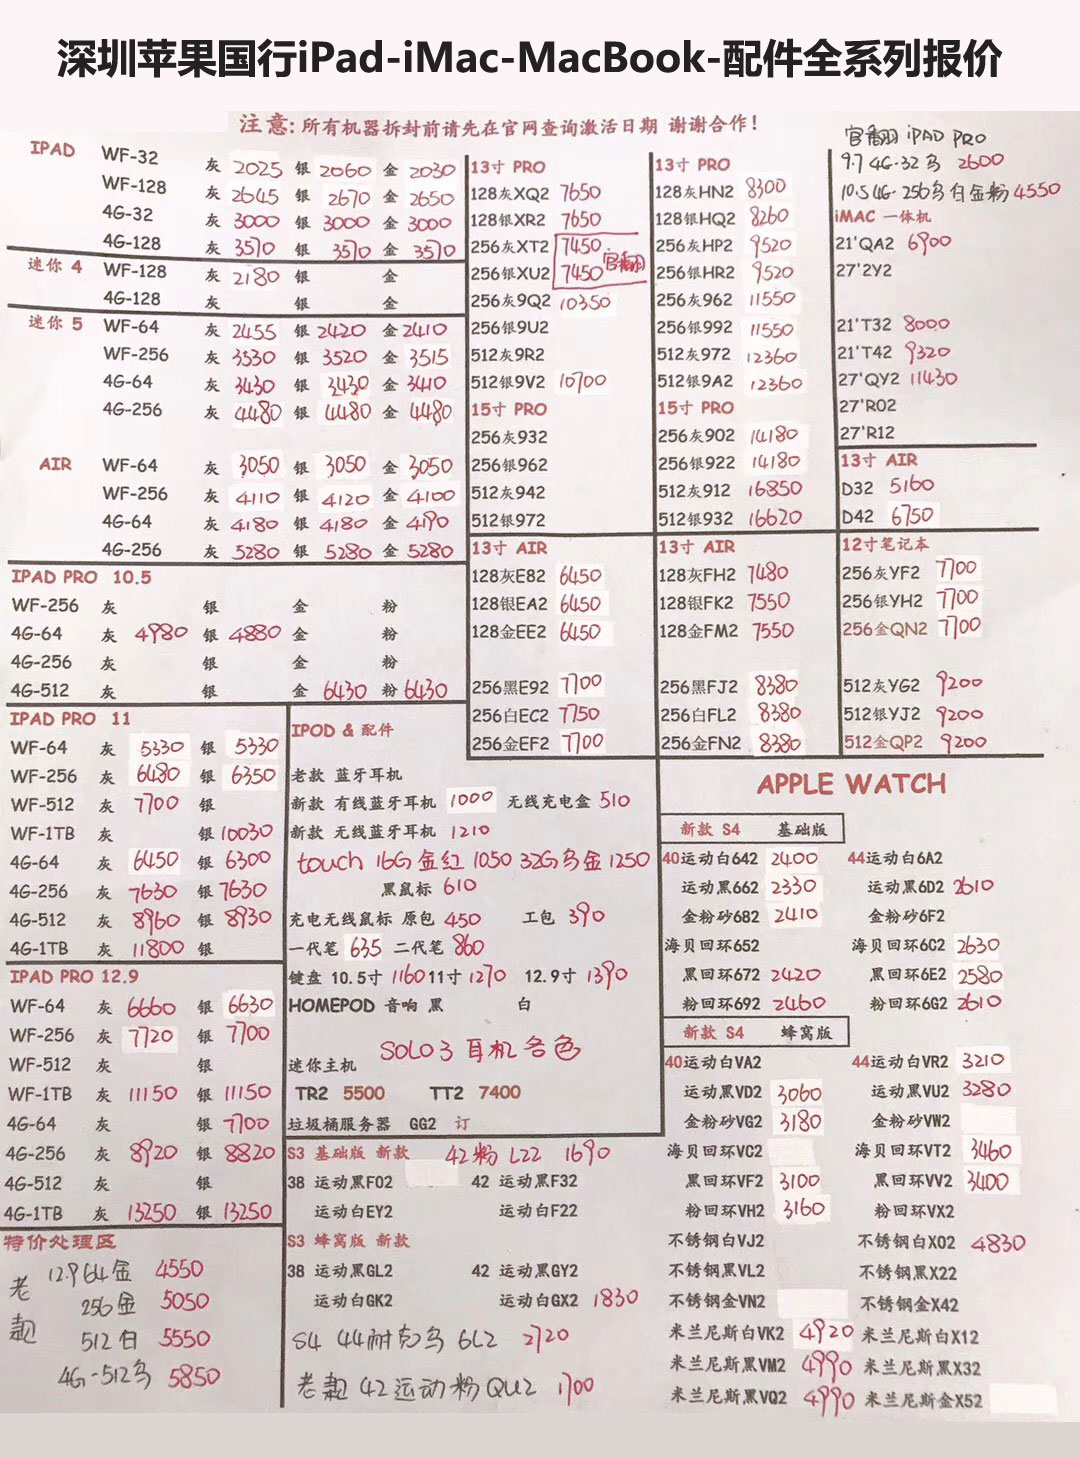 深圳苹果国行iPad-iMac-MacBook-配件全系列报价
注意: 所有机器拆封前请先在官网查询激活日期 谢谢合作!
IPAD WF-32 灰 2025 银 2060 金 2030
WF-128 灰 2645 银 2670 金 2650
4G-32 灰 3000 银 3000 金 3000
4G-128 灰 3570 银 3570 金 3570
迷你 4 WF-128 灰 2180 银 金
4G-128 灰 银 金
迷你 5 WF-64 灰 2455 银 2420 金 2410
WF-256 灰 3530 银 3520 金 3515
4G-64 灰 3430 银 3430 金 3410
4G-256 灰 4480 银 4480 金 4480
AIR WF-64 灰 3050 银 3050 金 3050
WF-256 灰 4110 银 4120 金 4100
4G-64 灰 4180 银 4180 金 4190
4G-256 灰 5280 银 5280 金 5280
IPAD PRO 10.5
WF-256 灰 银 金 粉
4G-64 灰 4980 银 4880 金 粉
4G-256 灰 银 金 粉
4G-512 灰 银 金 6430 粉 6430
IPAD PRO 11
WF-64 灰 5330 银 5330
WF-256 灰 6480 银 6350
WF-512 灰 7700 银
WF-1TB 银 10030
4G-64 灰 6450 银 6300
4G-256 灰 7630 银 7630
4G-512 灰 8960 银 8930
4G-1TB 灰 11800 银
IPAD PRO 12.9
WF-64 灰 6660 银 6630
WF-256 灰 7720 银 7700
WF-512 灰 银
WF-1TB 灰 11150 银 11150
4G-64 灰 银 7700
4G-256 灰 8920 银 8820
4G-512 灰 银
4G-1TB 灰 13250 银 13250
特价处理区
老款
12.9 64金 4550
256金 5050
512白 5550
4G-512乌 5850
13寸 PRO
128灰XQ2 7650
128银XR2 7650
256灰XT2 7450
256银XU2 7450 官翻
256灰9Q2 10350
256银9U2
512灰9R2
512银9V2 10700
15寸 PRO
256灰932
256银962
512灰942
512银972
13寸 AIR
128灰E82 6450
128银EA2 6450
128金EE2 6450
256黑E92 7700
256白EC2 7750
256金EF2 7700
13寸 PRO
128灰HN2 8300
128银HQ2 8260
256灰HP2 9520
256银HR2 9520
256灰962 11550
256银992 11550
512灰972 12360
512银9A2 12360
15寸 PRO
256灰902 14180
256银922 14180
512灰912 16850
512银932 16620
13寸 AIR
128灰FH2 7480
128银FK2 7550
128金FM2 7550
256黑FJ2 8380
256白FL2 8380
256金FN2 8380
官翻 iPAD PRO
9.7 4G·32乌 2600
10.5 4G·256乌白金粉 4550
iMAC 一体机
21'QA2 6900
27'2Y2
21'T32 8000
21'T42 9320
27'QY2 11430
27'R02
27'R12
13寸 AIR
D32 5160
D42 6750
12寸笔记本
256灰YF2 7700
256银YH2 7700
256金QN2 7700
512灰YG2 9200
512银YJ2 9200
512金QP2 9200
IPOD & 配件
老款 蓝牙耳机
新款 有线蓝牙耳机 1000 无线充电盒 510
新款 无线蓝牙耳机 1210
touch 16G 金红 1050 32G乌金 1250
黑鼠标 610
充电无线鼠标 原包 450 工包 390
一代笔 635 二代笔 860
键盘 10.5寸 1160 11寸 1270 12.9寸 1390
HOMEPOD 音响 黑 白
SOLO3 耳机各色
迷你主机
TR2 5500 TT2 7400
垃圾桶服务器 GG2 订
S3 基础版 新款 42粉 L22 1690
38 运动黑F02 42 运动黑F32
运动白EY2 运动白F22
S3 蜂窝版 新款
38 运动黑GL2 42 运动黑GY2
运动白GK2 运动白GX2 1830
S4 44耐克乌 6L2 2720
老款 42运动粉QU2 1700
APPLE WATCH
新款 S4 基础版
40运动白642 2400 44运动白6A2
运动黑662 2330 运动黑6D2 2610
金粉砂682 2410 金粉砂6F2
海贝回环652 海贝回环6C2 2630
黑回环672 2420 黑回环6E2 2580
粉回环692 2460 粉回环6G2 2610
新款 S4 蜂窝版
40运动白VA2 44运动白VR2 3210
运动黑VD2 3060 运动黑VU2 3280
金粉砂VG2 3180 金粉砂VW2
海贝回环VC2 海贝回环VT2 3460
黑回环VF2 3100 黑回环VV2 3400
粉回环VH2 3160 粉回环VX2
不锈钢白VJ2 不锈钢白X02 4830
不锈钢黑VL2 不锈钢黑X22
不锈钢金VN2 不锈钢金X42
米兰尼斯白VK2 4920 米兰尼斯白X12
米兰尼斯黑VM2 4990 米兰尼斯黑X32
米兰尼斯黑VQ2 4990 米兰尼斯金X52